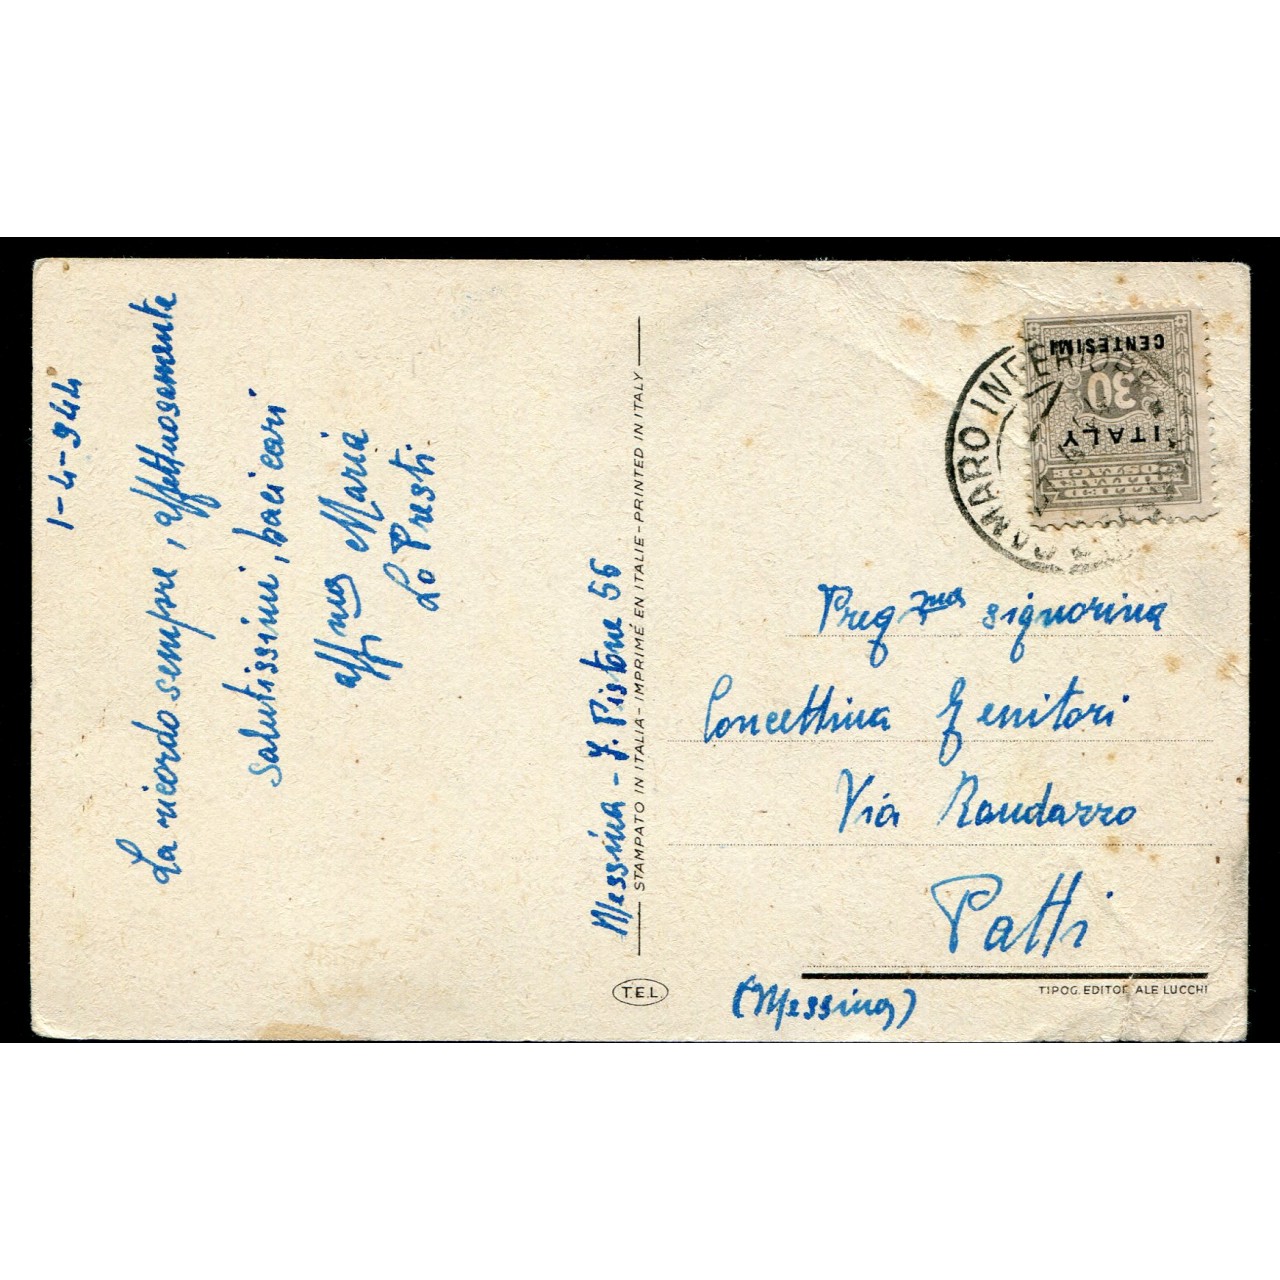 1-4-944
La ricordo sempre, affettuosamente
salutissimi, baci cari
affma Maria
Lo Presti
Messina - F. Pistone 56
STAMPATO IN ITALIA - IMPRIMÉ EN ITALIE - PRINTED IN ITALY
T.E.L.
CAMARO INFERIORE
ITALY
30
CENTESIMI
Preg ma signorina
Concettina Genitori
Via Randazzo
Patti
(Messina)
TIPOG. EDITOR ALE LUCCHI